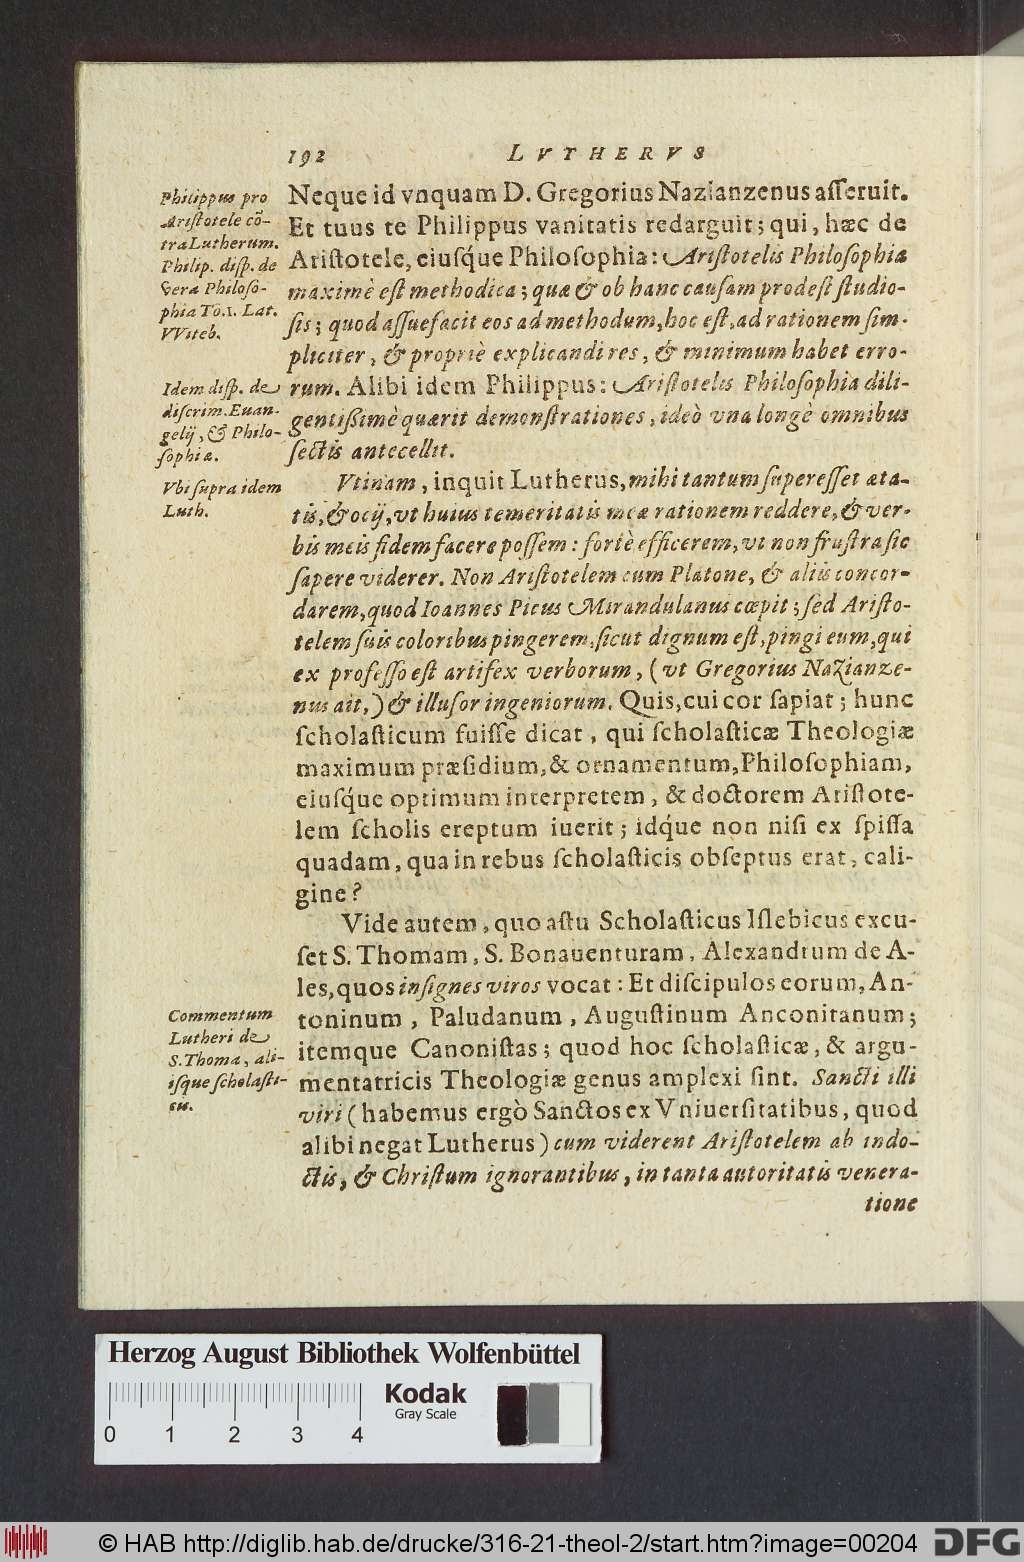 192 LVTHERVS
Philippus pro
Aristotele cō-
tra Lutherum.
Philip. disp. de
vera Philoso-
phia To.1. Lat.
VViteb.
Idem disp. de
discrim. Euan-
gelij, & Philo-
sophiæ.
Vbi supra idem
Luth.
Commentum
Lutheri de
S. Thoma, ali-
isque scholasti-
cis.
Neque id vnquam D. Gregorius Nazianzenus asſeruit.
Et tuus te Philippus vanitatis redarguit; qui, hæc de
Ariſtotele, eiuſq́ue Philoſophia: Ariſtotelis Philoſophia
maximè eſt methodica; quæ & ob hanc cauſam prodeſt ſtudio-
ſis; quod aſſuefacit eos ad methodum, hoc eſt, ad rationem ſim-
pliciter, & propriè explicandi res, & minimum habet erro-
rum. Alibi idem Philippus: Ariſtotelis Philoſophia dili-
gentißimè quærit demonſtrationes, ideò vna longè omnibus
ſectis antecellit.
Vtinam, inquit Lutherus, mihi tantum ſupereſſet æta-
tis, & ocij, vt huius temeritatis meæ rationem reddere, & ver-
bis meis fidem facere poſſem: fortè efficerem, vt non fruſtra ſic
ſapere viderer. Non Ariſtotelem cum Platone, & aliis concor-
darem, quod Ioannes Picus Mirandulanus cœpit; ſed Ariſto-
telem ſuis coloribus pingerem, ſicut dignum eſt, pingi eum, qui
ex profeſſo eſt artifex verborum, (vt Gregorius Nazianze-
nus ait,) & illuſor ingeniorum. Quis, cui cor ſapiat; hunc
ſcholaſticum fuiſſe dicat, qui ſcholaſticæ Theologiæ
maximum præſidium, & ornamentum, Philoſophiam,
eiuſq́ue optimum interpretem, & doctorem Ariſtote-
lem ſcholis ereptum iuerit; idq́ue non niſi ex ſpiſſa
quadam, qua in rebus ſcholaſticis obſeptus erat, cali-
gine?
Vide autem, quo aſtu Scholaſticus Iſlebicus excu-
ſet S. Thomam, S. Bonauenturam, Alexandrum de A-
les, quos inſignes viros vocat: Et diſcipulos eorum, An-
toninum, Paludanum, Auguſtinum Anconitanum;
itemque Canoniſtas; quod hoc ſcholaſticæ, & argu-
mentatricis Theologiæ genus amplexi ſint. Sancti illi
viri (habemus ergò Sanctos ex Vniuerſitatibus, quod
alibi negat Lutherus) cum viderent Ariſtotelem ab indo-
ctis, & Chriſtum ignorantibus, in tanta autoritatis venera-
tione
Herzog August Bibliothek Wolfenbüttel
Kodak
Gray Scale
0 1 2 3 4
© HAB http://diglib.hab.de/drucke/316-21-theol-2/start.htm?image=00204
DFG